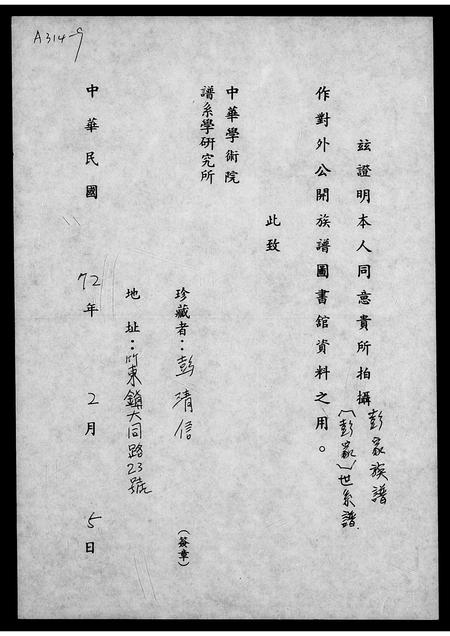 A314-9
茲證明本人同意貴所拍攝彭家族譜
(彭家)世系譜
作對外公開族譜圖書館資料之用。
此致
中華學術院
譜系學研究所
珍藏者：彭清信
(簽章)
地址：竹東鎮大同路23號
中華民國72年2月5日